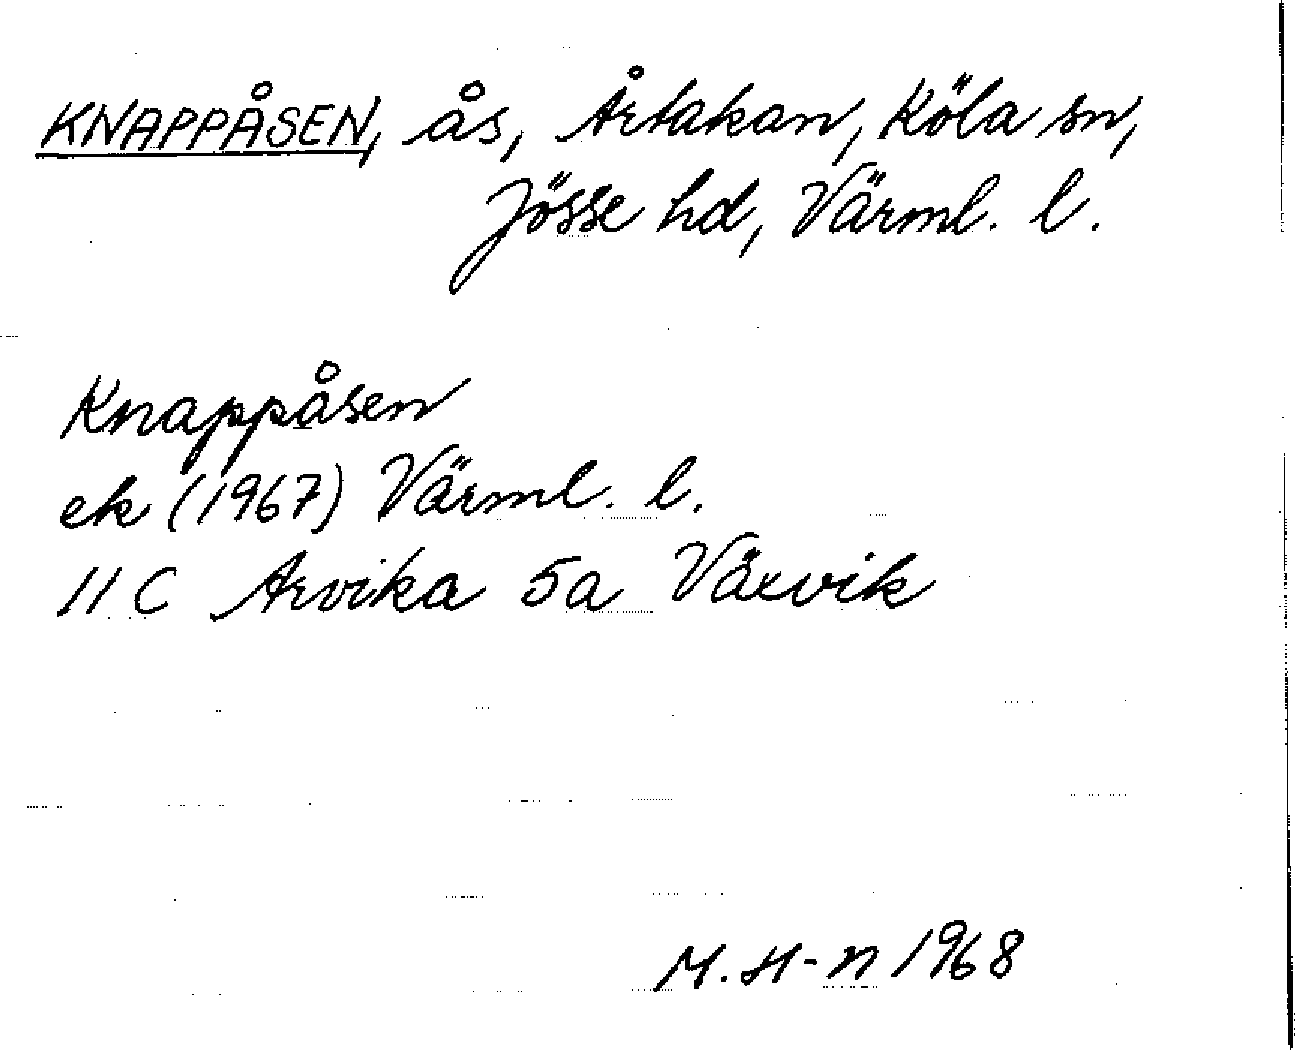 KNAPPÅSEN, ås, Årtakan, Köla sn,
Jösse hd, Värml. l.
Knappåsen
ek (1967) Värml. l.
11 C Arvika 5a Växvik
M. H-n 1968